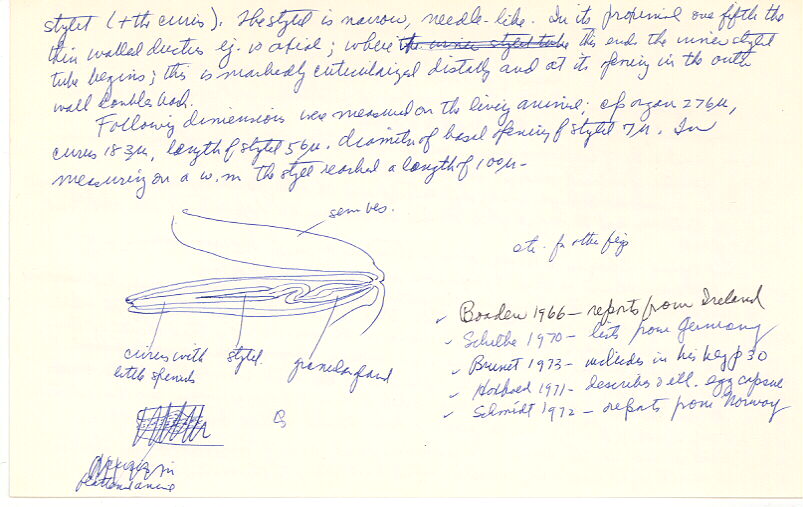 stylet (+ the cirrus). The stylet is narrow, needle-like. In its proximal one fifth the
thin walled ductus ej. is axial; where the inner stylet tube this ends the inner stylet
tube begins; this is markedly cuticularized distally and at its opening in the outer
wall doubles back.
Following dimensions was measured on the living animal: cop organ 276µ,
cirrus 183µ, length of stylet 56µ. diameter of basal opening of stylet 7µ. In
measuring on a w.m the stylet reached a length of 100µ-
sem ves.
etc. for othe figs
cirrus with stylet granular gland
little spines
Boaden 1966 - reports from Ireland
Schilke 1970 - lists from Germany
Brunet 1973 - includes in his key p 30
1971 - describes & ill. egg capsule
Schmidt 1972 - reports from Norway
in